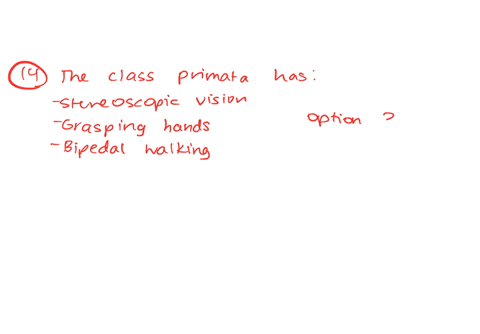 14 The class primata has:
-Stereoscopic vision
-Grasping hands
option
-Bipedal walking